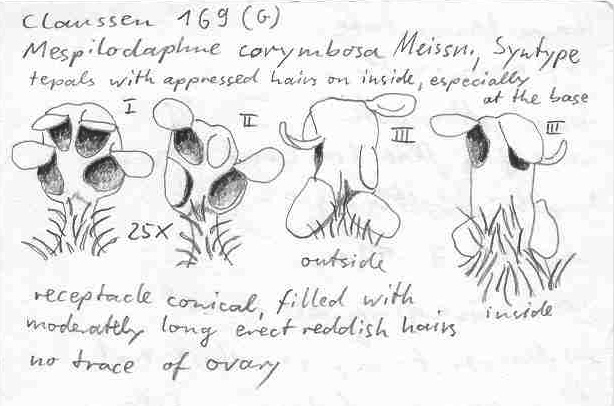 Claussen 169 (G)
Mespilodaphne corymbosa Meissn., Syntype
tepals with appressed hairs on inside, especially
at the base
I
II
III
III
25X
outside
inside
receptacle conical, filled with
moderately long erect reddish hairs
no trace of ovary